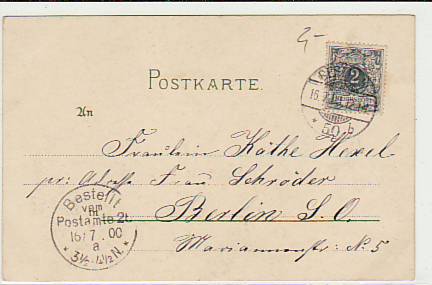 2,-
POSTKARTE.
2
BERLIN
16.7.
* 50 b
An
Fräulein Käthe Hexel
pr: Adresse Frau Schröder
Berlin S. O.
Mariannenstr: No 5
Bestellt
vom
Postamte 2t.
16/7. 00
a
* 3½-4½N. *